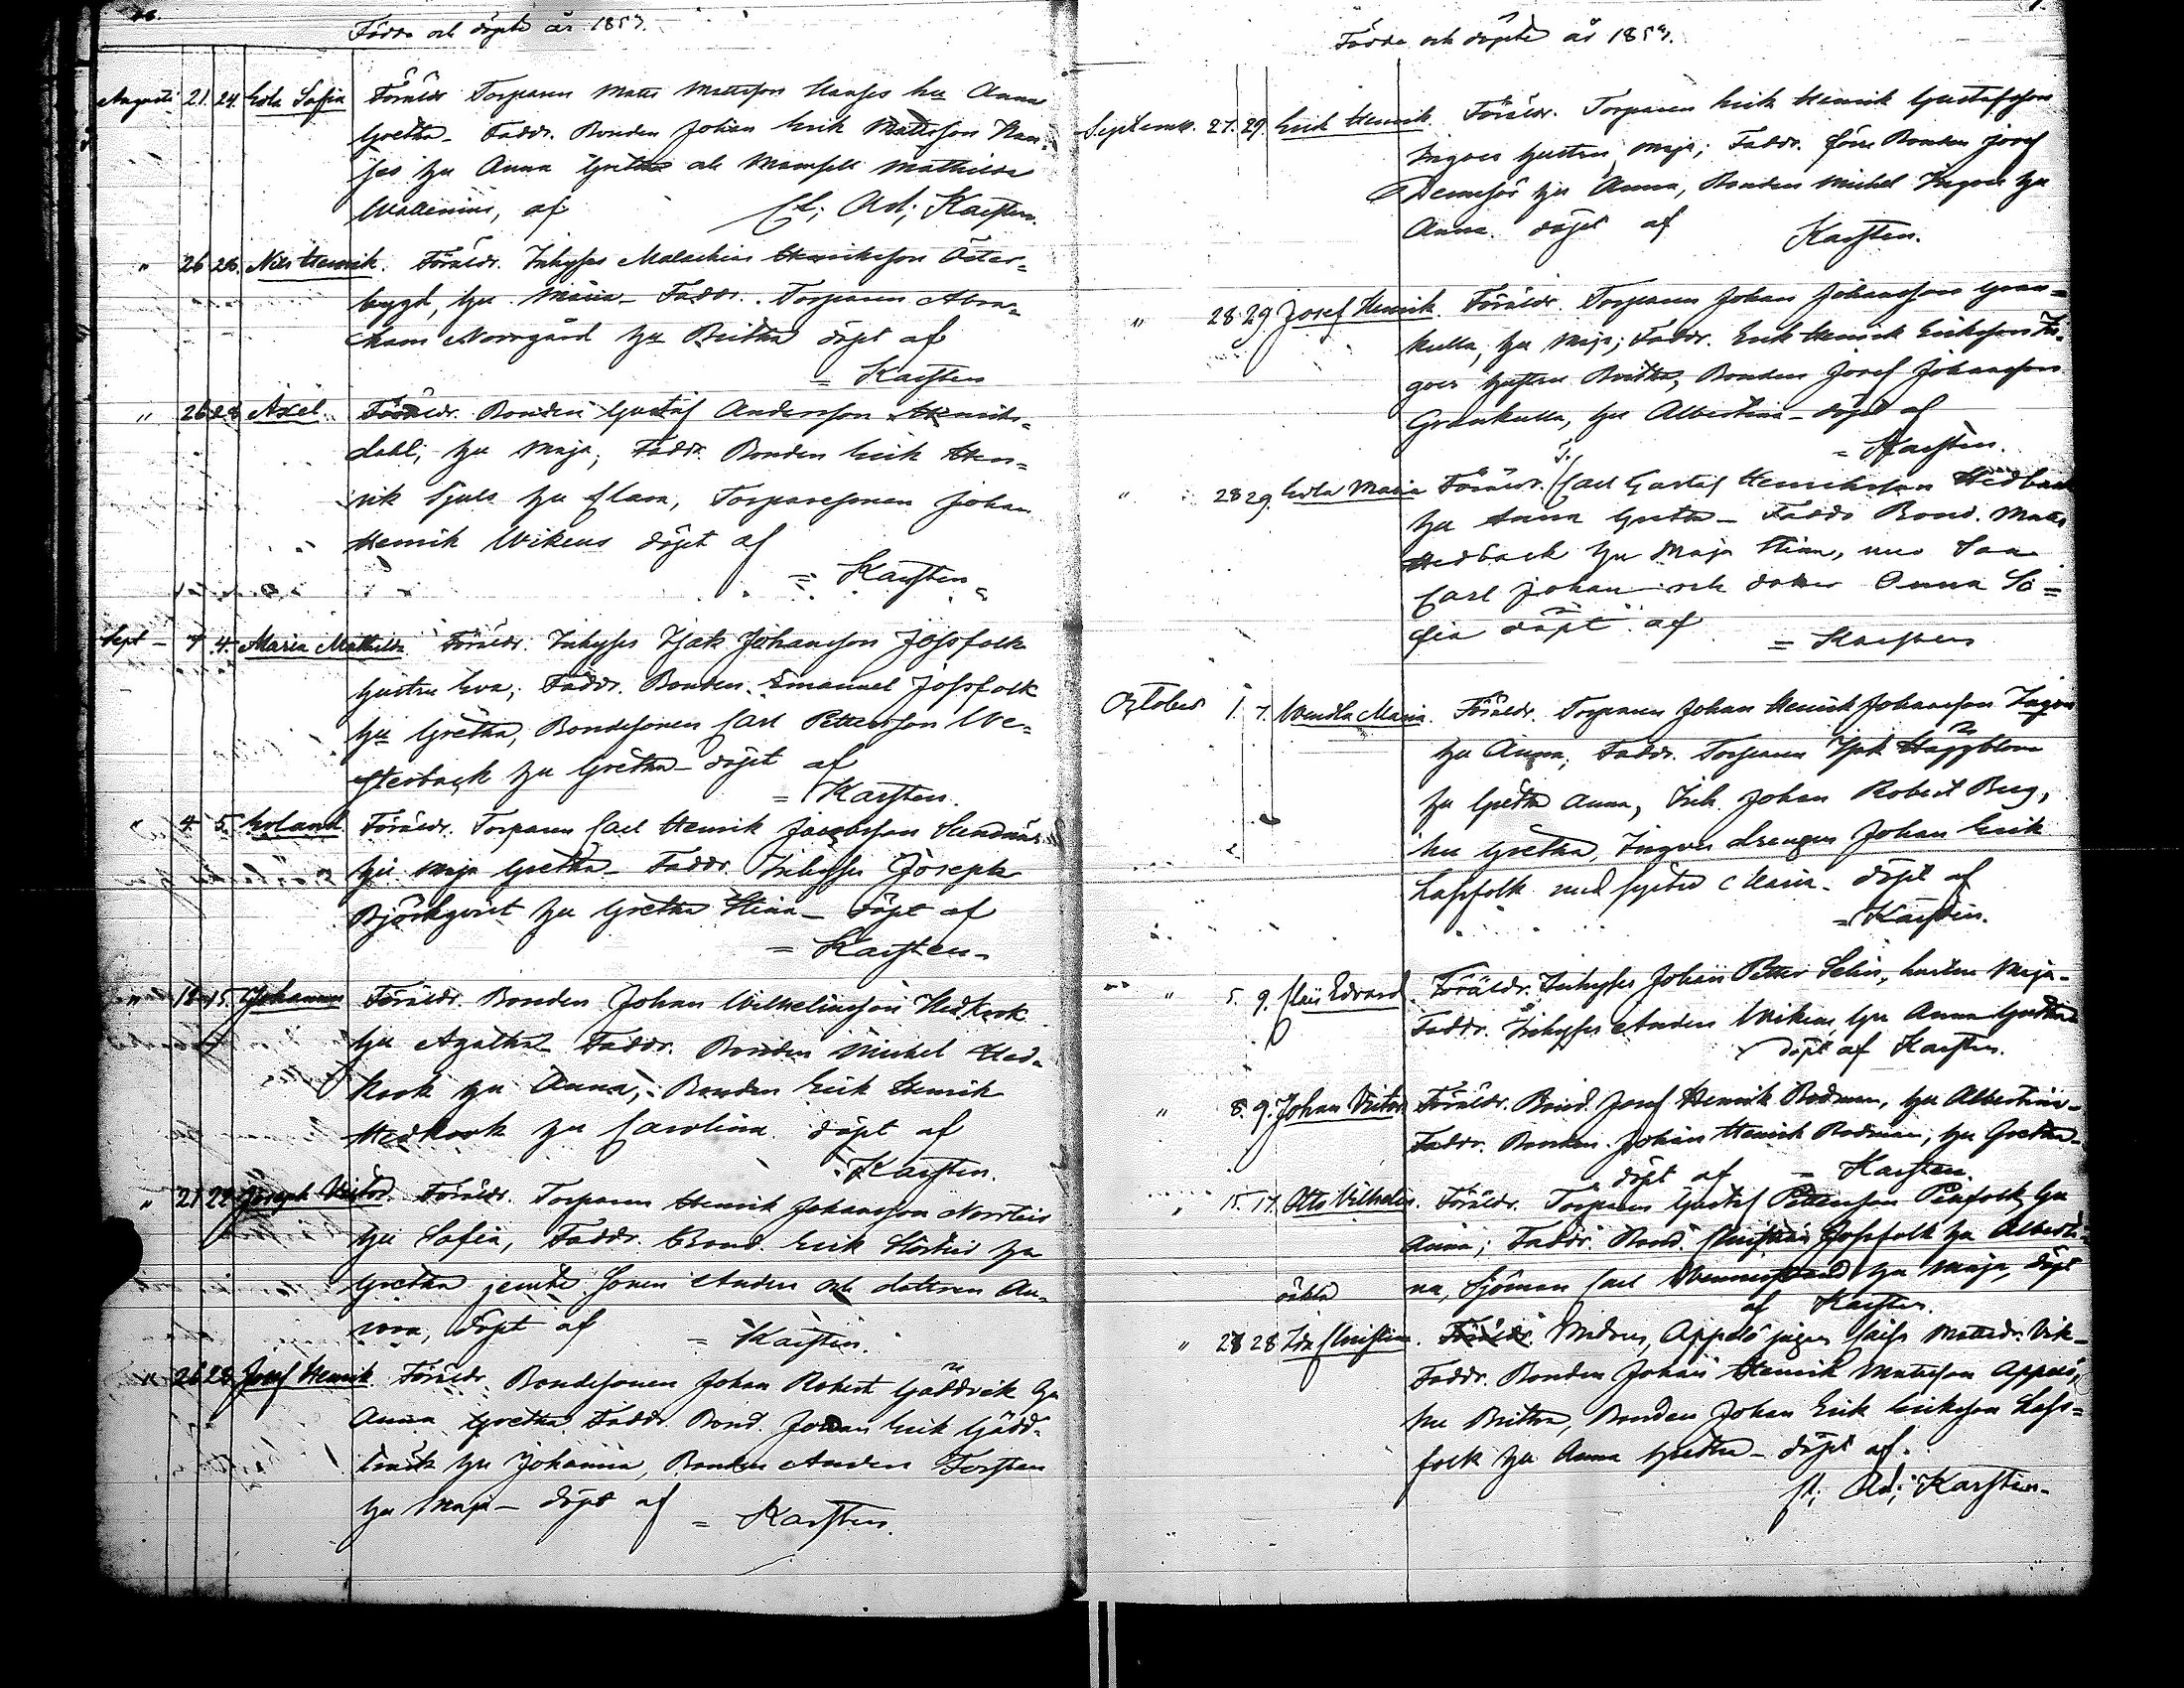 Födde och döpte år 1853.
Augusti 21. 24. Eva Sofia Föräldr Torparen Matts Mattsson Hansjes hu Anna
Gretha_ Faddr. Bonden Johan Erik Mattsson Han-
jes hu Anna Gretha och Mamsell Mathilda
Wallenius, af C; Ad; Karsten.
" 26 28. Nils Henrik. Föräldr. Inhyses Malachias Henriksson Öster=
bygd, hu Maria_ Faddr. Torparen Abra=
ham Norrgård hu Britha döpt af
= Karsten
" 26 28 Axel. Föräldr. Bonden Gustaf Andersson Henriks=
dahl; hu Maja; Faddr. Bonden Erik Hen=
rik Sjuls hu Clara, Torparesonen Johan
Henrik Wikens döpt af
= Karsten
Sept _ 4. Maria Mathilda. Föräldr. Inhyses Isak Johansson Jossfolk
hustru Eva; Faddr. Bonden Emanuel Jossfolk
hu Gretha, Bondesonen Carl Pettersson We=
sterback hu Gretha_ döpt af
= Karsten.
" 4 5. Erland Föräldr. Torparen Carl Henrik Jacobsson Sundnäs
hu Maja Gretha_ Faddr. Inhyses Joseph
Björkqvist hu Gretha Stina_ döpt af
= Karsten_
" 15. Johannes Föräldr. Bonden Johan Wilhelmsson Hedkrok
hu Agatha_ Faddr. Bonden Michel Hed=
krok hu Anna; Bonden Erik Henrik
Hedkrok hu Carolina. döpt af
Karsten.
" 21 22 Joseph Victor. Föräldr. Torparen Henrik Johansson Norrteir
hu Sofia, Faddr. Bond. Erik Störteir hu
Gretha jemte Sonen Anders och dottren An=
na, döpt af = Karsten.
" 26 28 Josef Henrik. Föräldr. Bondesonen Johan Robert Gäddvik hu
Anna Gretha Faddr. Bond. Johan Erik Gädd=
hu Johanna, Bonden Anders Torsten
hu Maja_ döpt af = Karsten.
Födde och döpte år 1853.
Septemb. 27. 29. Erik Henrik. Föräldr. Torparen Erik Henrik Gustafsson
Ingves hustru Maja; Faddr. förre Bonden Josef
hu Anna, Bonden Michel Ingves hu
Anna. döpt af Karsten.
" 28 29. Josef Henrik. Föräldr. Torparen Johan Johansson Gran=
kulla, hu Maja; Faddr. Erik Henrik Eriksson In=
gves hustru Britha, Bonden Josef Johansson
Grankulla, hu Albertina_ döpt af
= Karsten.
" 28 29. Eva Maria Föräldr. T. Carl Gustaf Henriksson Hedback
hu Anna Gretha_ Faddr Bond. Matts
Hedback hu Maja Stina, med Son
Carl Johan och dotter Anna So=
fia döpt af = Karsten
October 1. 7. Wendla Maria. Föräldr. Torparen Johan Henrik Johansson Ingves
hu Anna; Faddr. Torparen Isak Häggblom
hu Gretha Anna, Inh. Johan Robert Berg,
hu Gretha, Ingves drengen Johan Erik
Lassfolk med syster Maria_ döpt af
= Karsten.
" 5. 9. Edvard Föräldr. Inhyses Johan Petter Selin, hustru Maja_
Faddr. Inhyses Anders Wikens, hu Anna Gretha
döpt af Karsten.
" 8. 9. Johan Victor Föräldr. Bond. Josef Henrik Rodman, hu Albertina_
Faddr. Bonden Johan Henrik Rodman, hu Gretha_
döpt af = Karsten.
" 15. 17. Otto Vilhelm. Föräldr. Torparen Gustaf Pettersson Penfolk, hu
Anna; Faddr. Bond. Christian Jossfolk hu Alberti=
na, Sjöman Carl Wennerstrand hu Maja, döpt
af Karsten.
oäkta
" 28 28 Ida Christina. Föräldr. Modren, Appelö pigan Caisa Mattsdr. Vik_
Faddr. Bonden Johan Henrik Mattsson Appelö,
hu Britha, Bonden Johan Erik Eriksson Lass=
folk hu Anna Gretha_ döpt af.
C; Ad; Karsten_